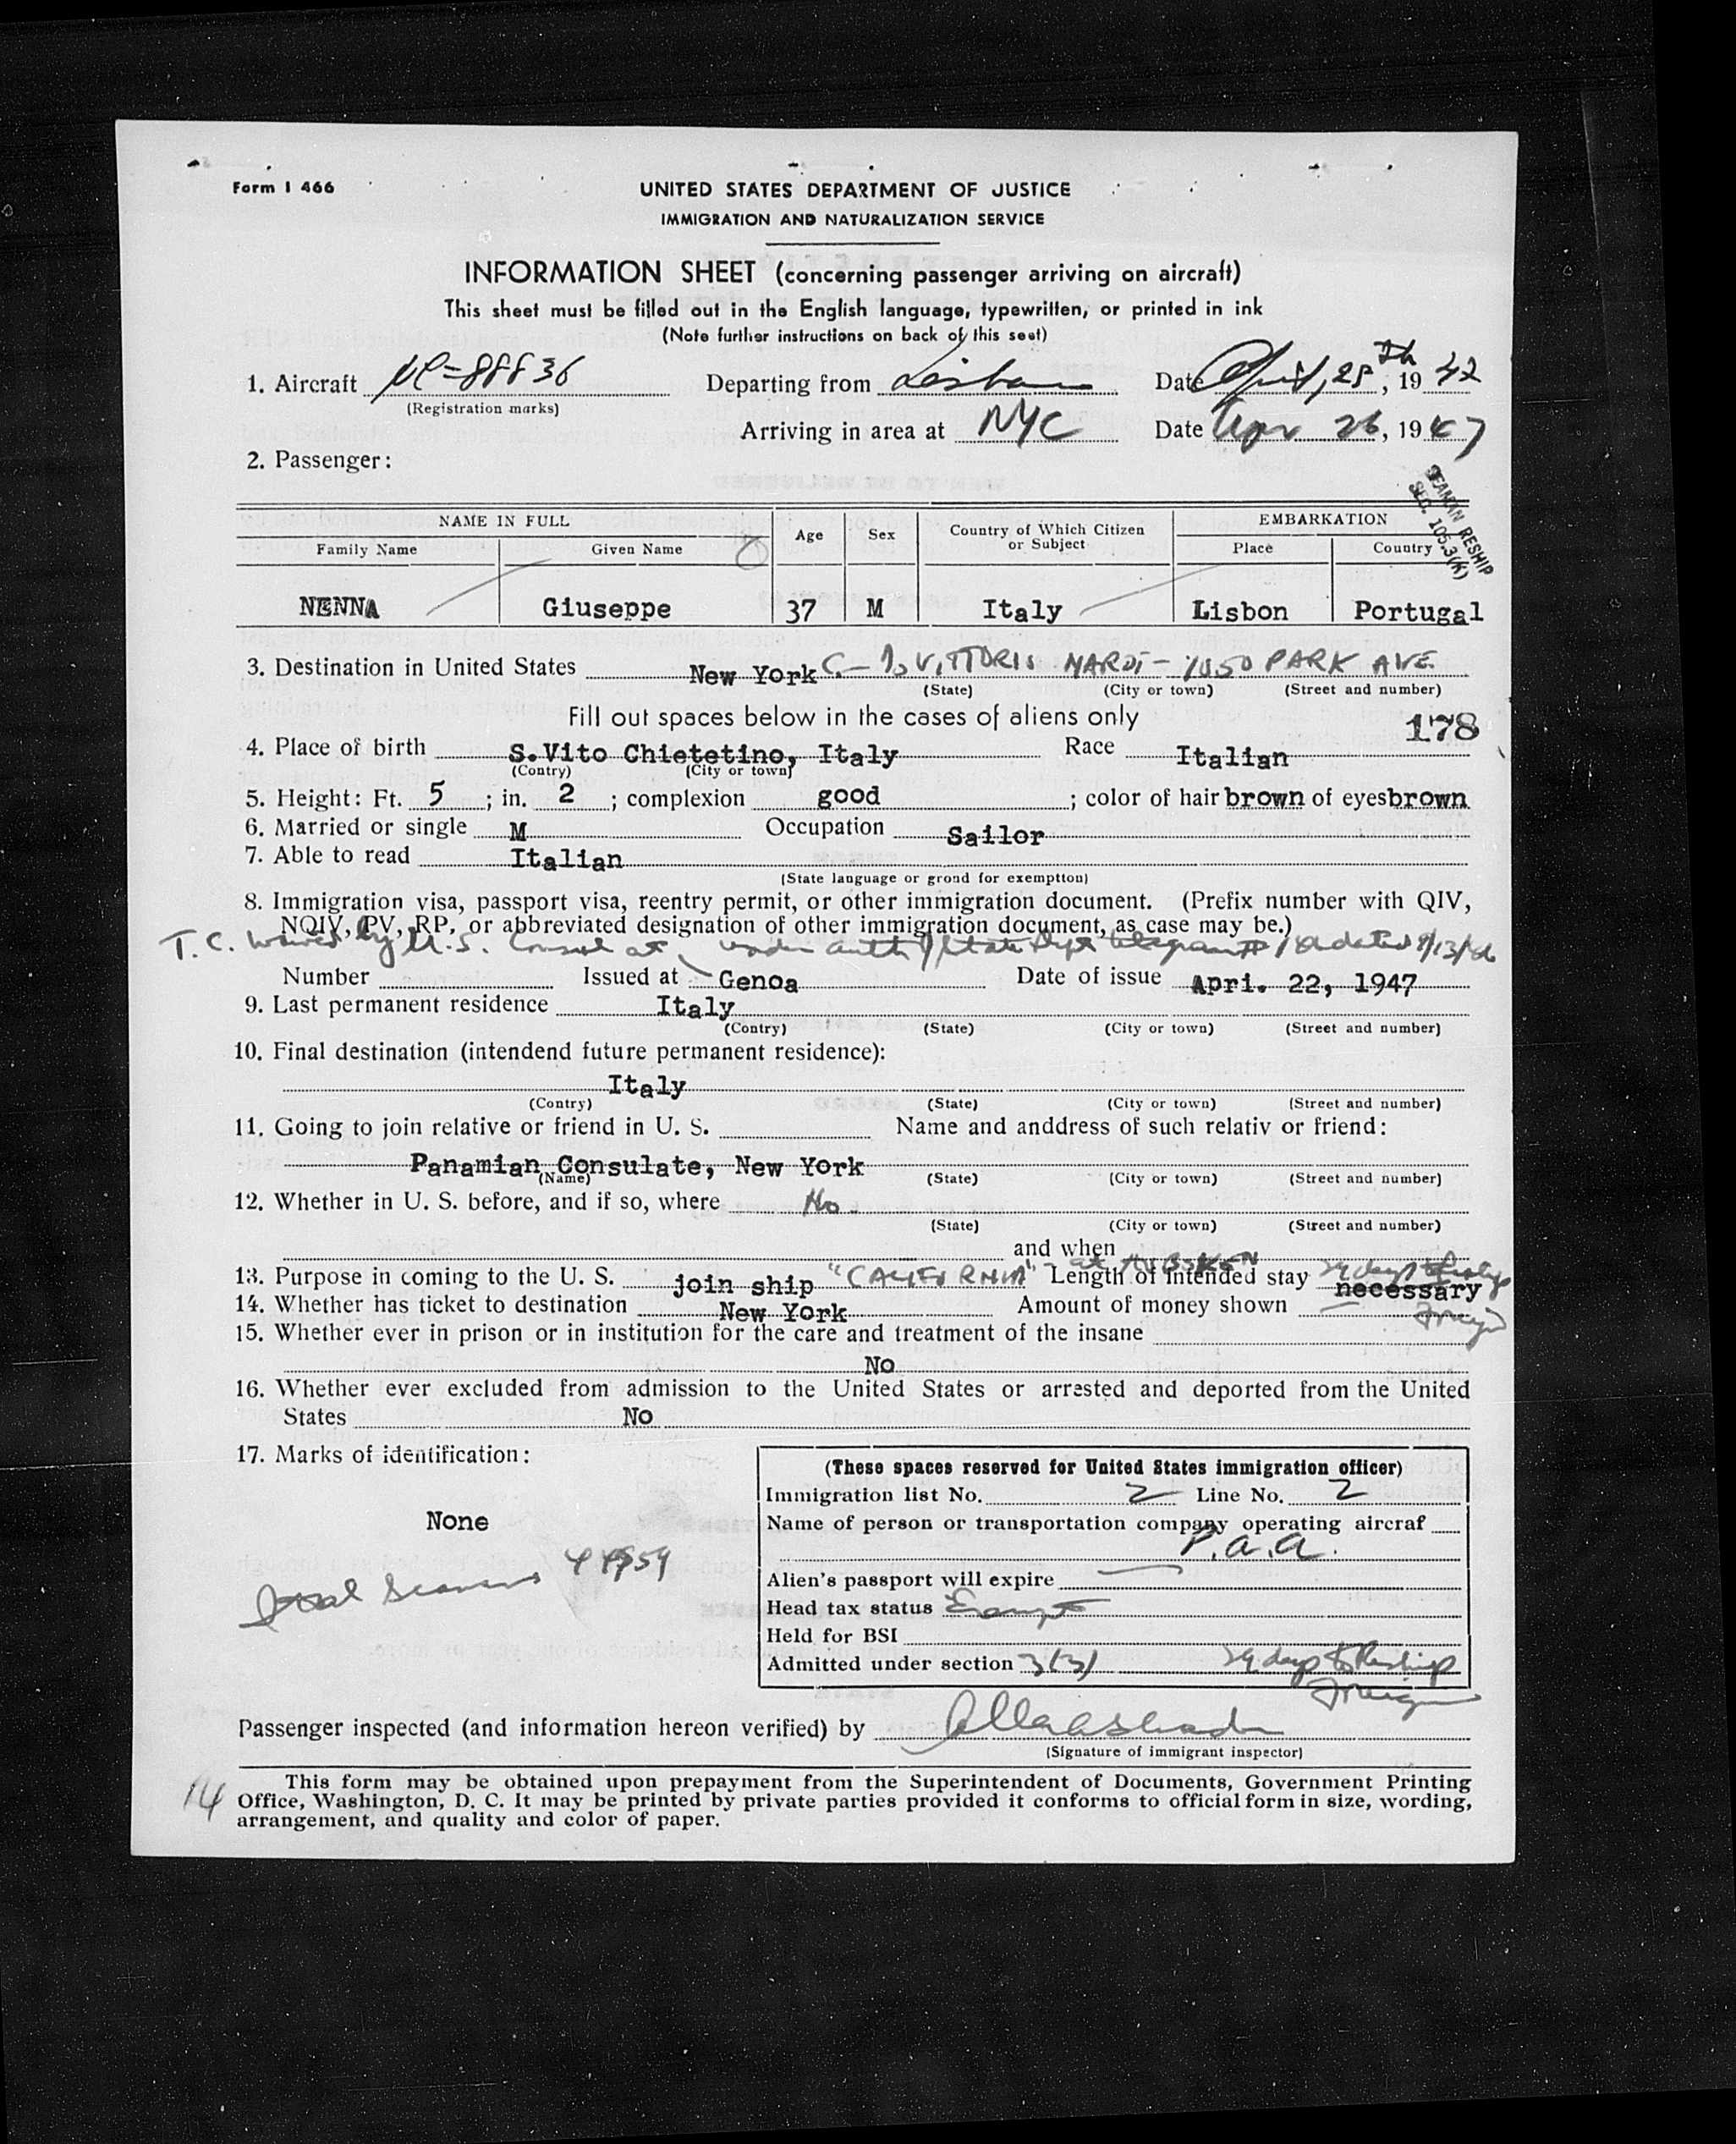 Form I 466
UNITED STATES DEPARTMENT OF JUSTICE
IMMIGRATION AND NATURALIZATION SERVICE
INFORMATION SHEET (concerning passenger arriving on aircraft)
This sheet must be filled out in the English language, typewritten, or printed in ink
(Note further instructions on back of this seet)
1. Aircraft NC=88836 Departing from Lisbon Date April, 25th, 19 47
(Registration marks)
Arriving in area at NYC Date Apr 26, 1947
2. Passenger:
SEAMAN RESHIP
SEC. 105.3(K)
NAME IN FULL Age Sex Country of Which Citizen or Subject EMBARKATION
Family Name Given Name Place Country
NENNA Giuseppe 37 M Italy Lisbon Portugal
3. Destination in United States New York VITTORIS NARDI - 1050 PARK AVE
(State) (City or town) (Street and number)
Fill out spaces below in the cases of aliens only
178
4. Place of birth S.Vito Chietetino, Italy Race Italian
(Contry) (City or town)
5. Height: Ft. 5 ; in. 2 ; complexion good ; color of hair brown of eyes brown
6. Married or single M Occupation Sailor
7. Able to read Italian
(State language or grond for exemptton)
8. Immigration visa, passport visa, reentry permit, or other immigration document. (Prefix number with QIV,
NQIV, PV, RP, or abbreviated designation of other immigration document, as case may be.)
T.C. waived by U.S. Consul at under auth of State Dept telegram dated
Number Issued at Genoa Date of issue Apri. 22, 1947
9. Last permanent residence Italy
(Contry) (State) (City or town) (Street and number)
10. Final destination (intendend future permanent residence):
Italy
(Contry) (State) (City or town) (Street and number)
11. Going to join relative or friend in U. S. Name and anddress of such relativ or friend:
Panamian Consulate, New York
(Name) (State) (City or town) (Street and number)
12. Whether in U. S. before, and if so, where No.
(State) (City or town) (Street and number)
and when
13. Purpose in coming to the U. S. join ship "CALIFORNIA" at HOBOKEN Length of intended stay 29 days to Reship necessary
14. Whether has ticket to destination New York Amount of money shown — Foreign
15. Whether ever in prison or in institution for the care and treatment of the insane
No
16. Whether ever excluded from admission to the United States or arrested and deported from the United
States No
17. Marks of identification:
None
Ital Seamans
(These spaces reserved for United States immigration officer)
Immigration list No. 2 Line No. 2
Name of person or transportation company operating aircraf
P.A.A.
Alien's passport will expire —
Head tax status Exempt
Held for BSI
Admitted under section 3(3) 29 days to Reship
Foreign
Passenger inspected (and information hereon verified) by
(Signature of immigrant inspector)
14
This form may be obtained upon prepayment from the Superintendent of Documents, Government Printing
Office, Washington, D. C. It may be printed by private parties provided it conforms to official form in size, wording,
arrangement, and quality and color of paper.